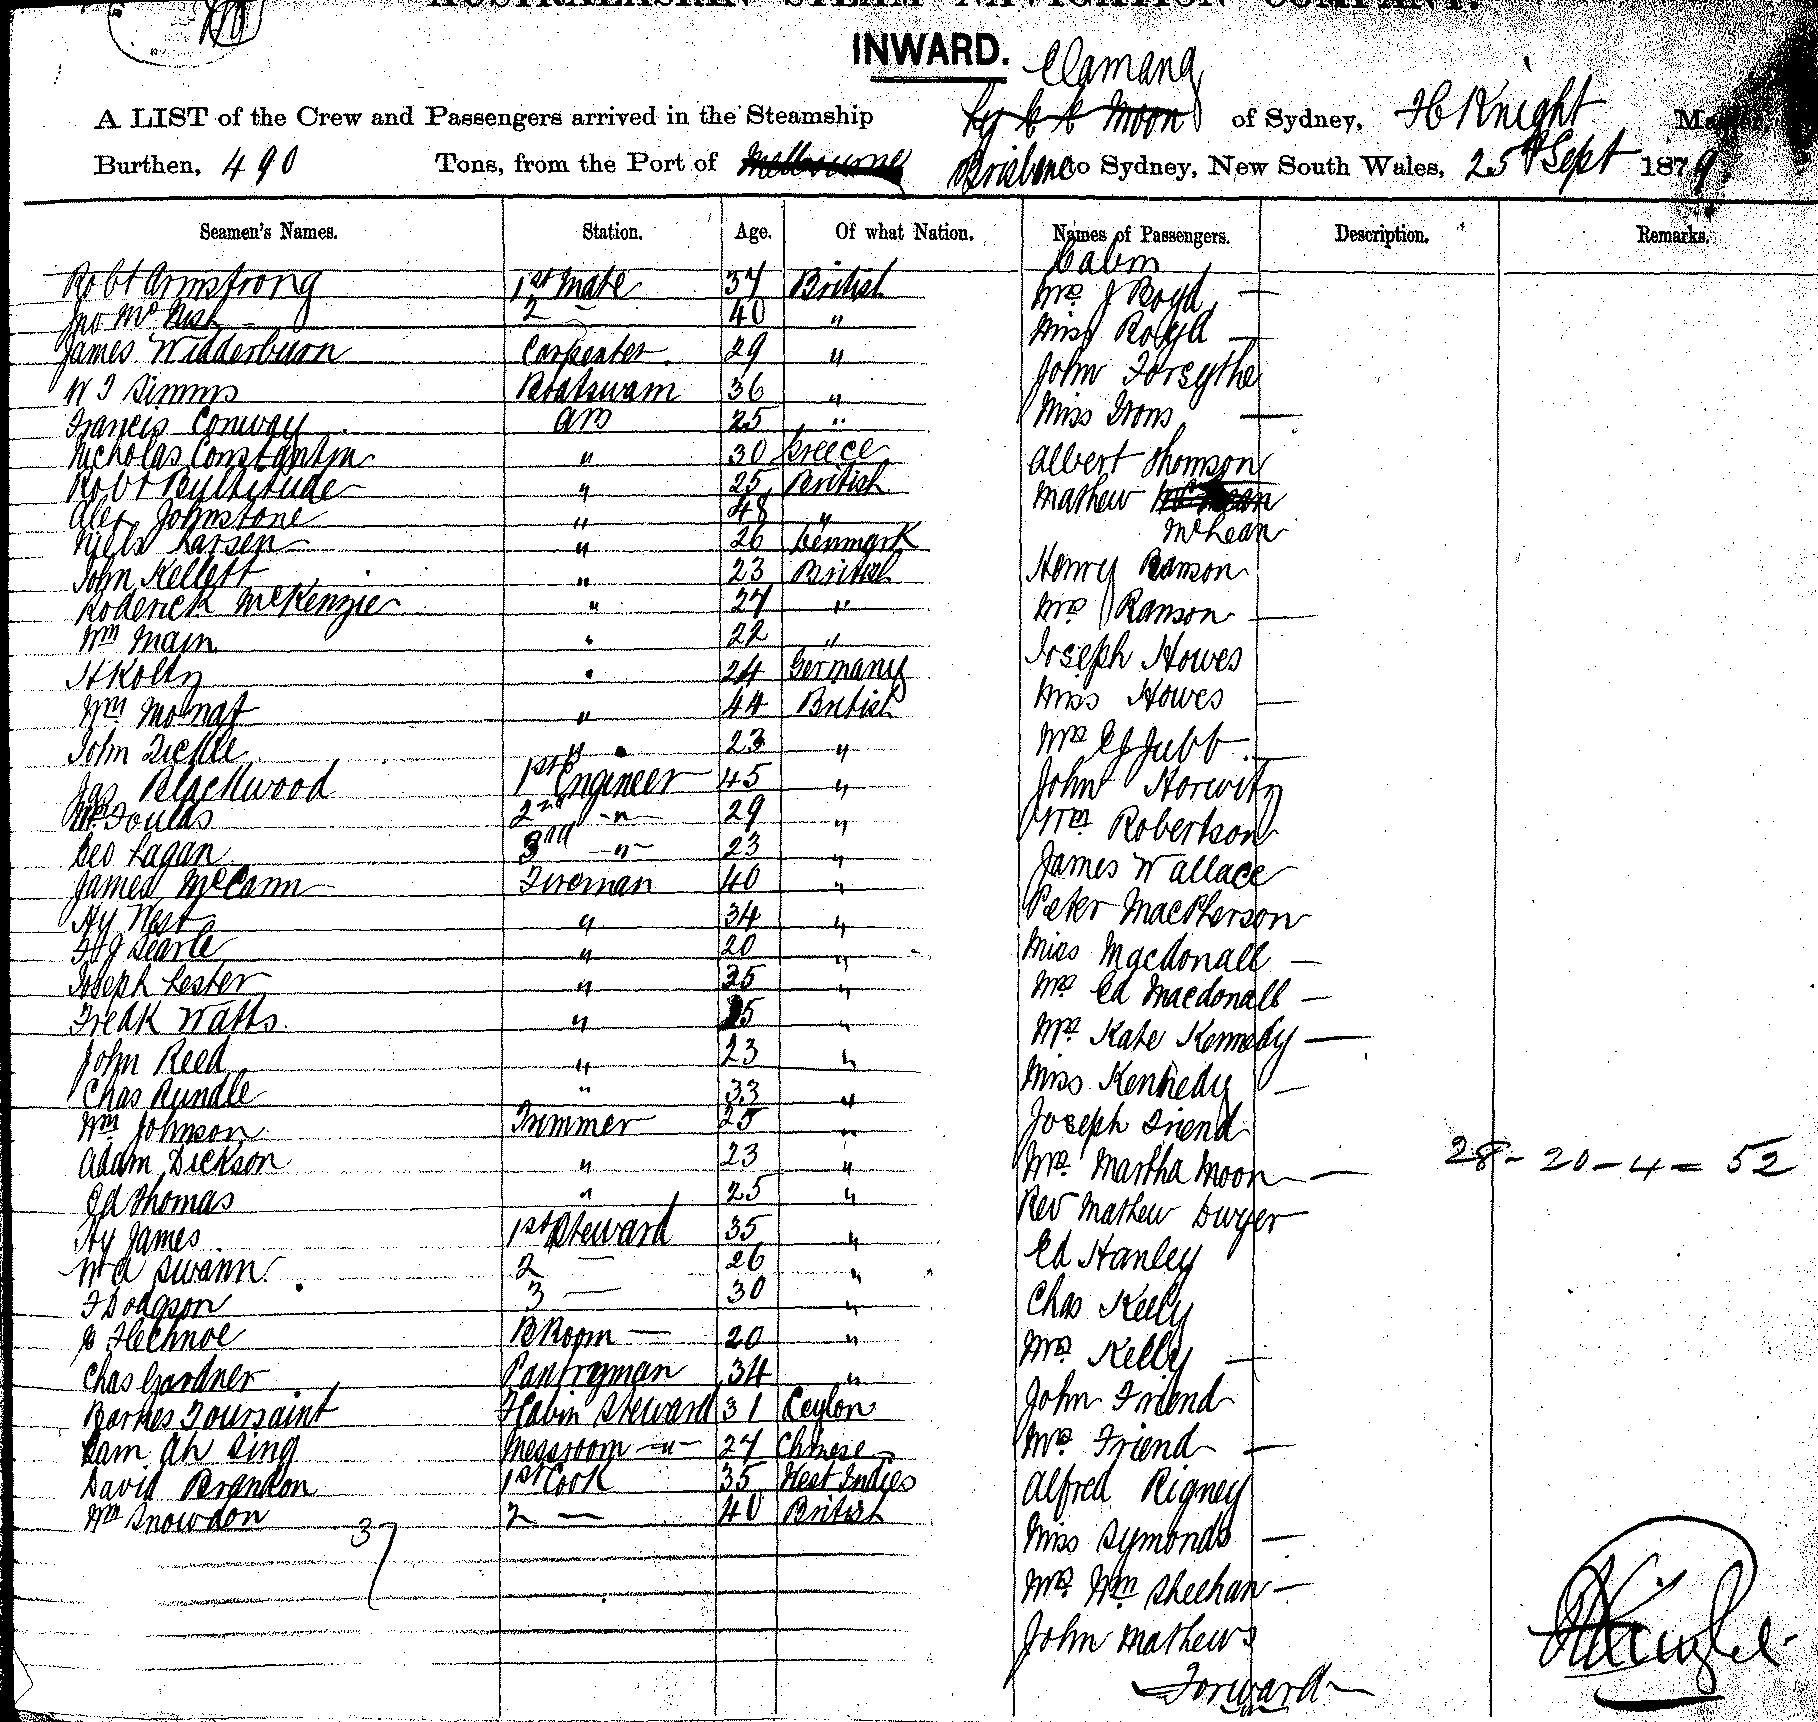 AUSTRALASIAN STEAM NAVIGATION COMPANY.
INWARD.
Elamang
A LIST of the Crew and Passengers arrived in the Steamship of Sydney, H Knight Master
Burthen, 490 Tons, from the Port of Melbourne Brisbane to Sydney, New South Wales, 25th Sept 1879.
Seamen's Names. Station. Age. Of what Nation. Names of Passengers. Description. Remarks.
Cabin
Robt Armstrong 1st Mate 37 British Mrs J Boyd —
Jno 2 — 40 " Miss Boyd —
James Widderburn Carpenter 29 " John Forsythe
W J Simms Boatswain 36 " Miss Irons —
Francis Conway AB 25 "
Nicholas Constantin " 30 Greece Albert Thomson
Robt Pultitude " 25 British Mathew
Alex Johnstone " 48 " McLean
Niels Larsen " 26 Denmark
John Kellett " 23 British Henry Ranson
Roderick McKenzie " 27 " Mrs Ranson —
Wm Main " 22 " Joseph Howes
H Kolty " 24 Germany
Wm " 44 British Miss Howes —
John Tickle " 23 " Mrs Jubb —
Jas Blackwood 1st Engineer 45 " John Horwitz
Foulds 2nd " 29 " Wm Robertson
Geo Lagan 3rd " 23 " James Wallace
James McCann Fireman 40 "
Hy West " 34 " Peter MacPherson
Searle " 20 " Miss Macdonall —
Joseph Lester " 35 " Mrs Ed Macdonall —
Fredk Watts " " Mrs Kate Kennedy —
John Reed " 23 " Miss Kennedy —
Chas Rundle " 33 "
Wm Johnson Trimmer 25 " Joseph Friend
Adam Dickson " 23 " Mrs Martha Moon — 28 - 20 - 4 = 52
Ed Thomas " 25 " Rev Mathew Dwyer
Hy James 1st Steward 35 " Ed Hanley
W A Swann 2 — 26 "
F Dodgson 3 — 30 " Chas Kelly
B Room — 20 " Mrs Kelly —
Chas Gardner Pantryman 34 " John Friend
Barnes Toursaint F Cabin Steward 31 Ceylon
Sam Ah Sing Messroom " 27 Chinese Mrs Friend —
David Brandon 1st Cook 35 West Indies Alfred Rigney
Wm Snowdon 2 — 40 British
37 Miss Symonds —
Mrs Wm Sheehan —
John Mathews
Forward